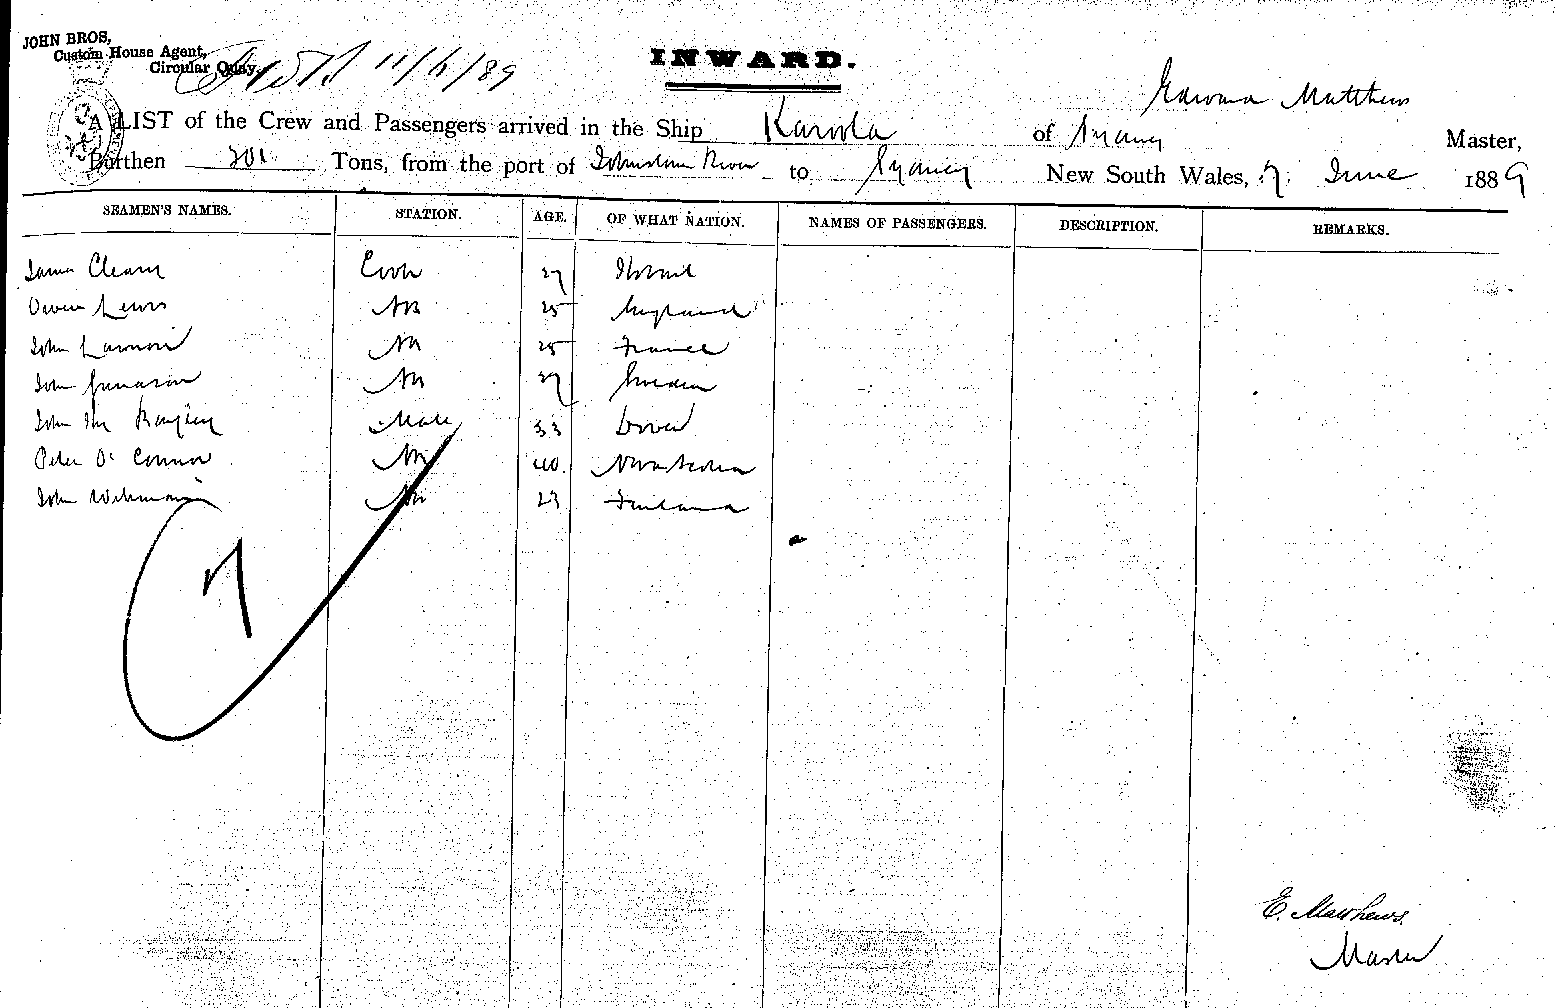 JOHN BROS,
Custom House Agent,
Circular Quay.
11/6/89
INWARD.
Edward Matthews
A LIST of the Crew and Passengers arrived in the Ship Karoola of Sydney Master,
Burthen 201 Tons, from the port of Johnstone River to Sydney New South Wales, 7 June 1889
SEAMEN'S NAMES. STATION. AGE. OF WHAT NATION. NAMES OF PASSENGERS. DESCRIPTION. REMARKS.
James Cook 27
Owen Lewis AB 25 England
John AB 25 France
John AB 27 Sweden
John Mate 33 Dover
Peter O'Connor AB 40 Nova Scotia
John AB 23 Finland
7
E. Matthews
Master